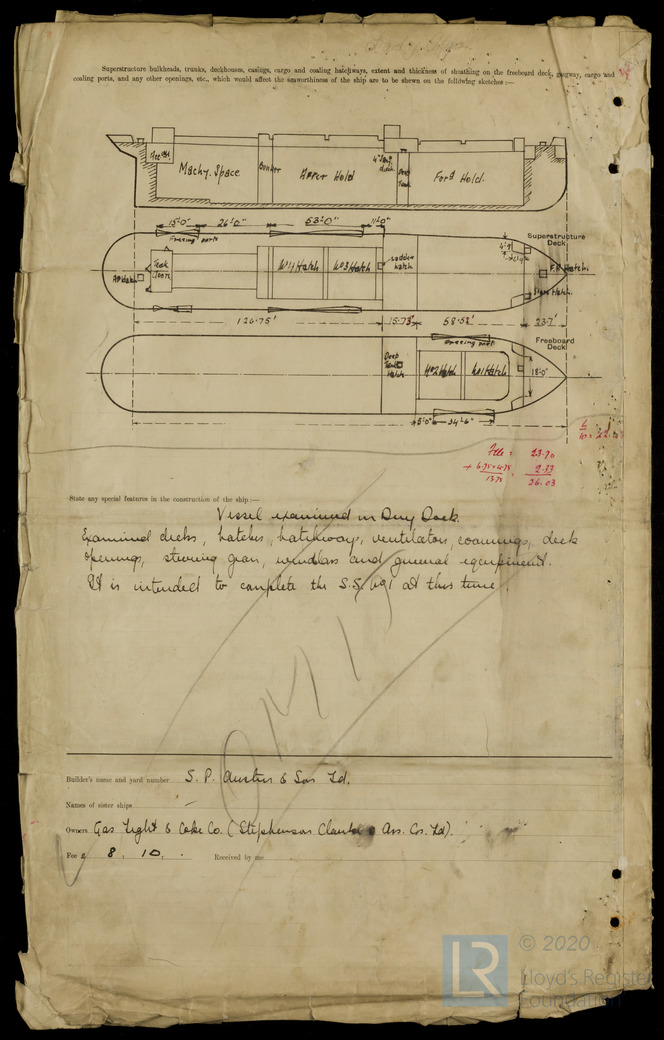 Superstructure bulkheads, trunks, deckhouses, casings, cargo and coaling hatchways, extent and thickness of sheathing on the freeboard deck, gangway, cargo and
coaling ports, and any other openings, etc., which would affect the seaworthiness of the ship are to be shewn on the following sketches :—
Machy. Space
Bunker
After Hold
Deep Tank
Ford Hold.
15'-0"
26'-0"
53'-0"
11'-0"
Freeing ports
Superstructure
Deck
No 4 Hatch
No 3 Hatch
F.P. Hatch
Store Hatch.
126.75'
15.73'
58.52'
23.7'
Freeing port
Freeboard
Deck
Deep
Tank
Hatch
No 2 Hatch
No 1 Hatch
18'-0"
34'-6"
23.70
+ 6.75 × 4.75
13.75
2.33
26.03
State any special features in the construction of the ship :—
Vessel examined in Dry Dock.
Examined decks, hatches, hatchways, ventilators, coamings, deck
openings, steering gear, windlass and general equipment.
It is intended to complete the S.S. No 1 at this time.
OMIT
Builder's name and yard number S. P. Austin & Son Ld.
Names of sister ships —
Owners Gas Light & Coke Co. (Stephenson Clarke & Ass. Cos. Ld).
Fee £ 8 : 10 : . Received by me
LR
© 2020
Lloyd's Register
Foundation